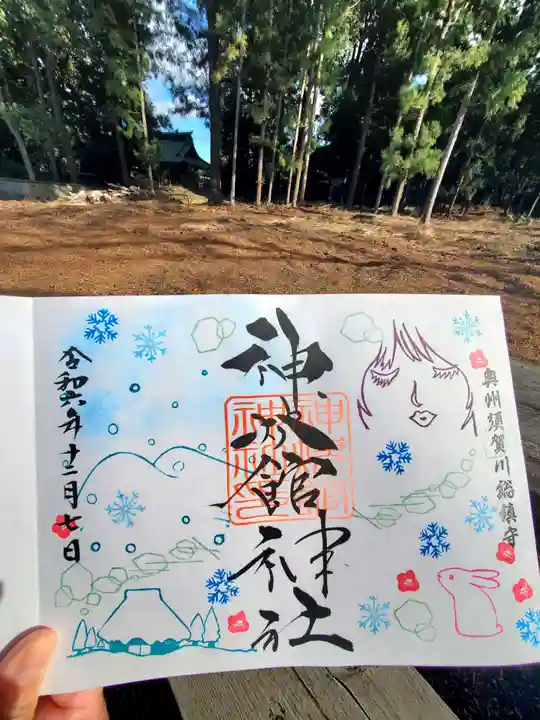 奥州須賀川総鎮守
神炊館神社
令和六年十二月七日